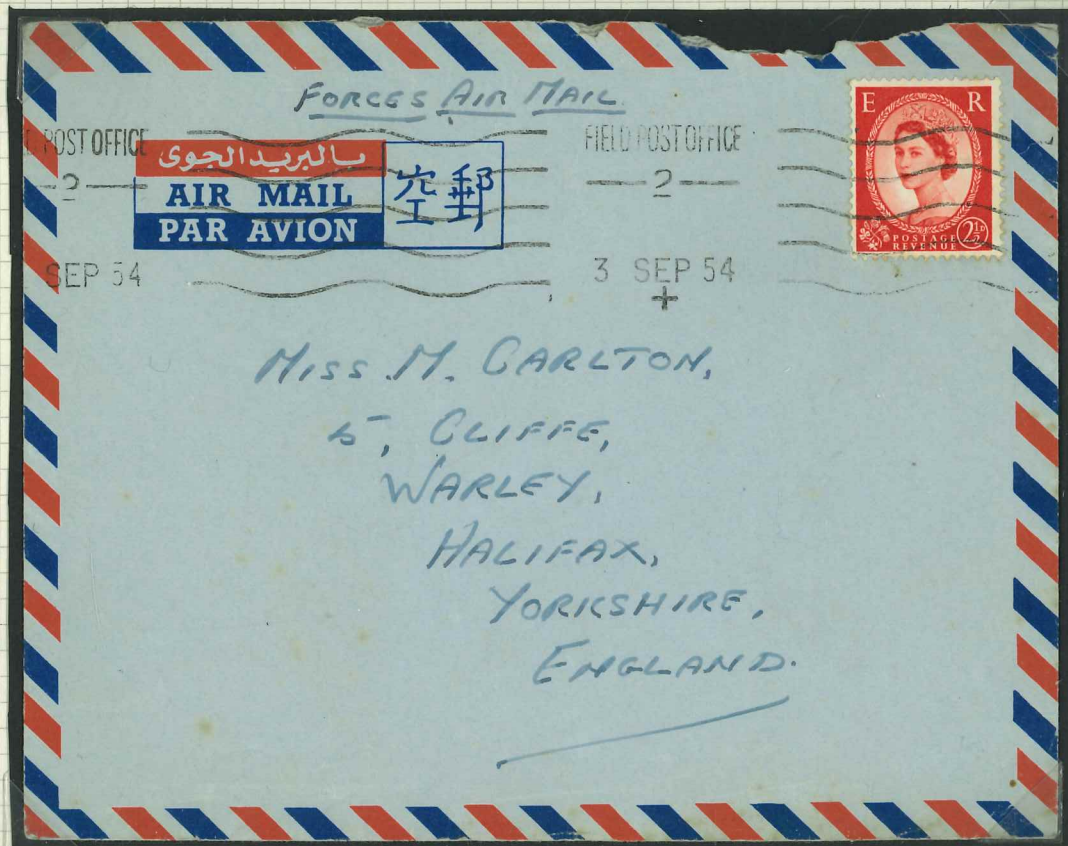 FORCES AIR MAIL
POST OFFICE
2
SEP 54
بالبريد الجوى
AIR MAIL
PAR AVION
空郵
FIELD POST OFFICE
2
3 SEP 54
E R
POSTAGE
REVENUE
2½D
MISS. M. CARLTON,
5, CLIFFE,
WARLEY,
HALIFAX,
YORKSHIRE,
ENGLAND.